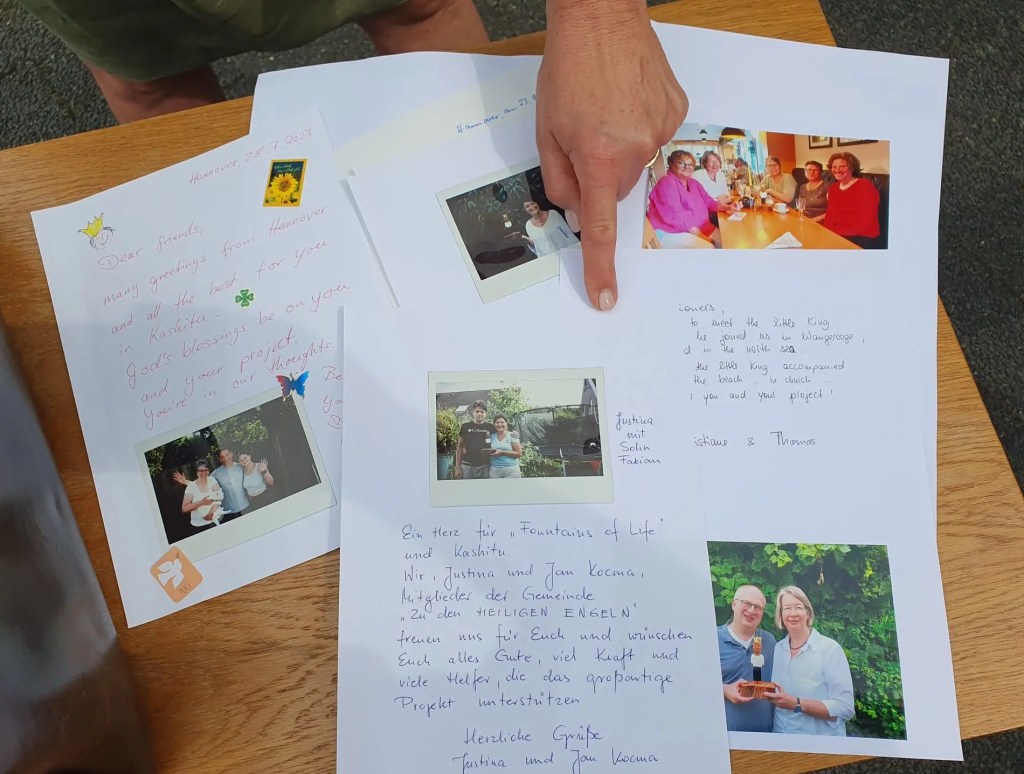 Hannover, 28.7.2023
Dear friends,
many greetings from Hannover
and all the best for you
in Kashitu.
God's blessings be on you
and your project.
You're in our thoughts.
Be
Yo
Hannover, am 23.
ioners,
to meet the little King
he joined us in Wangerooge,
d in the north sea
the little king accompanied
the beach, in church ...
you and your project!
istiane & Thomas
Justina
mit
Sohn
Fabian
Ein Herz für "Fountains of Life"
und Kashitu.
Wir, Justina und Jan Kocma,
Mitglieder der Gemeinde
"Zu den HEILIGEN ENGELN"
freuen uns für Euch und wünschen
Euch alles Gute, viel Kraft und
viele Helfer, die das großartige
Projekt unterstützen
Herzliche Grüße
Justina und Jan Kocma